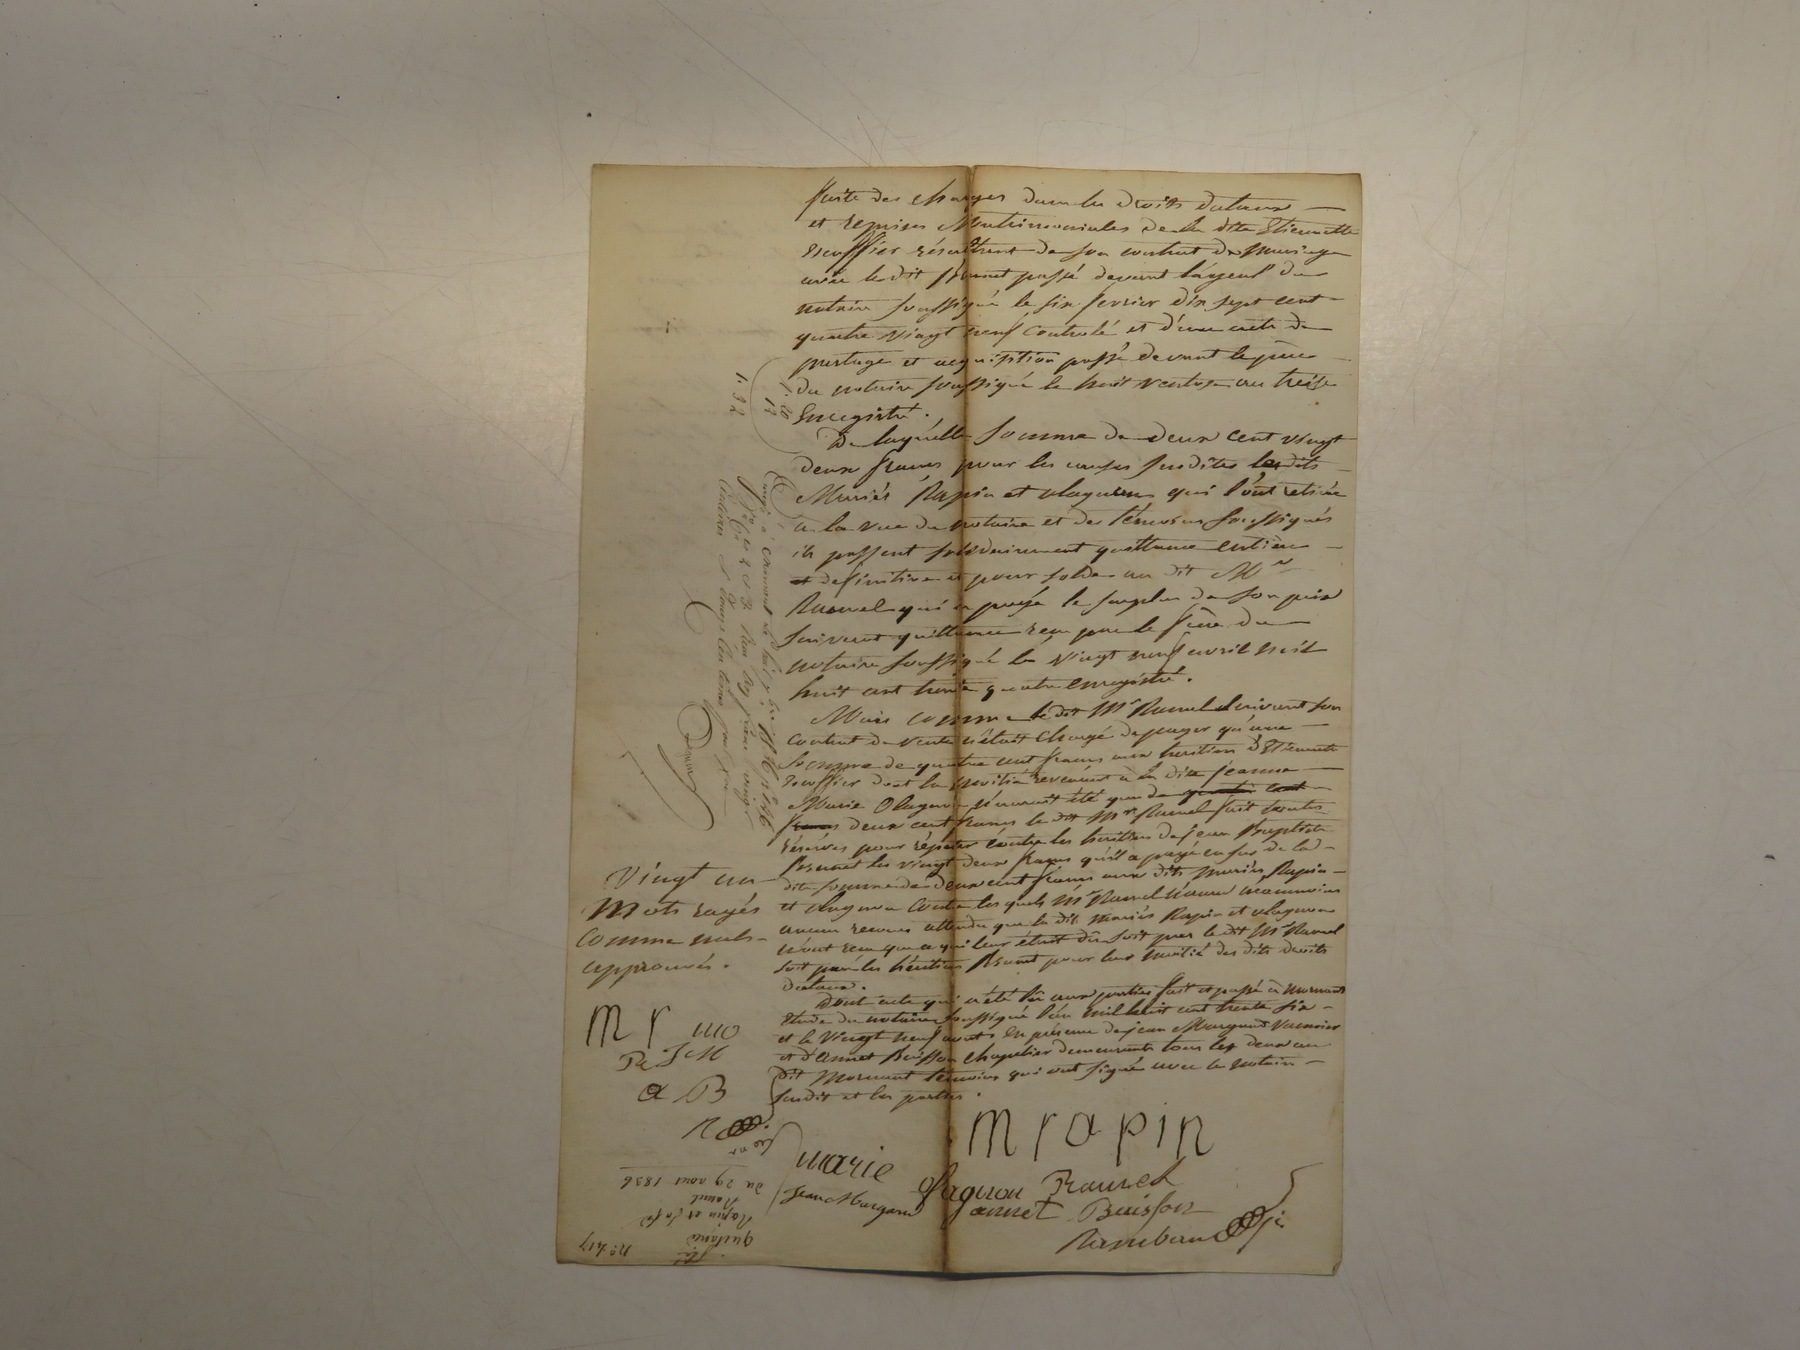 suite des charges dans les droits dotaux
et reprises Matrimoniales de la dite Etiennette
Escoffier résultant de son contrat de Mariage
avec le dit passé devant l'ayeul du
notaire soussigné le six fevrier dix sept cent
quatre vingt neuf controlé et d'un acte de
partage et acquisition passé devant le père
du notaire soussigné le huit ventose an treize
Enregistré.
De laquelle Somme de deux cent vingt
deux francs pour les causes susdites les dits
Mariés Rapin et olagnon qui l'ont retirée
a la vue du notaire et des témoins soussignés
ils passent solidairement quittance entière
et definitive et pour solde au dit Mr
Ramel qui a payé le surplus de son prix
suivant quittance reçu par le frère du
notaire soussigné le vingt neuf avril mil
huit cent trente quatre enregistré.
Mais comme le dit Mr Ramel suivant son
contrat de vente n'était chargé de payer qu'une
Somme de quatre cent francs aux heritiers d'Etiennette
Escoffier dont la moitié revenant à la dite jeanne
Marie Olagnon n'aurait été que de quatre cent
francs deux cent francs le dit Mr Ramel fait toutes
réserves pour répéter contre les héritiers de jean Baptiste
les vingt deux francs qu'il a payé en sus de la
dite somme de deux cent francs aux dits mariés Rapin
et olagnon contre lesquels Mr Ramel n'aura néanmoins
aucun recours attendu que les dits mariés Rapin et olagnon
n'ont reçu que ce qui leur était dû soit par le dit Mr Ramel
soit par les héritiers pour leur moitié des dits droits
dotaux.
Dont acte qui a été lu aux parties fait et passé à Mornant
Etude du notaire soussigné l'an mil huit cent trente six
et le vingt neuf aout en présence de jean Margand
et d'annet Buisson chapelier demeurants tous les deux au
dit Mornant témoins qui ont signé avec le notaire
susdit et les parties.
1. 20
12
1. 32
Vingt un
Mots rayés
comme nuls
approuvés.
m r mo
JM
a B
R
mrapin
marie olagnon Ramel
Jean Margand annet Buisson
Rambaud
No 417
quitance
Rapin et
Ramel
du 29 aout 1836